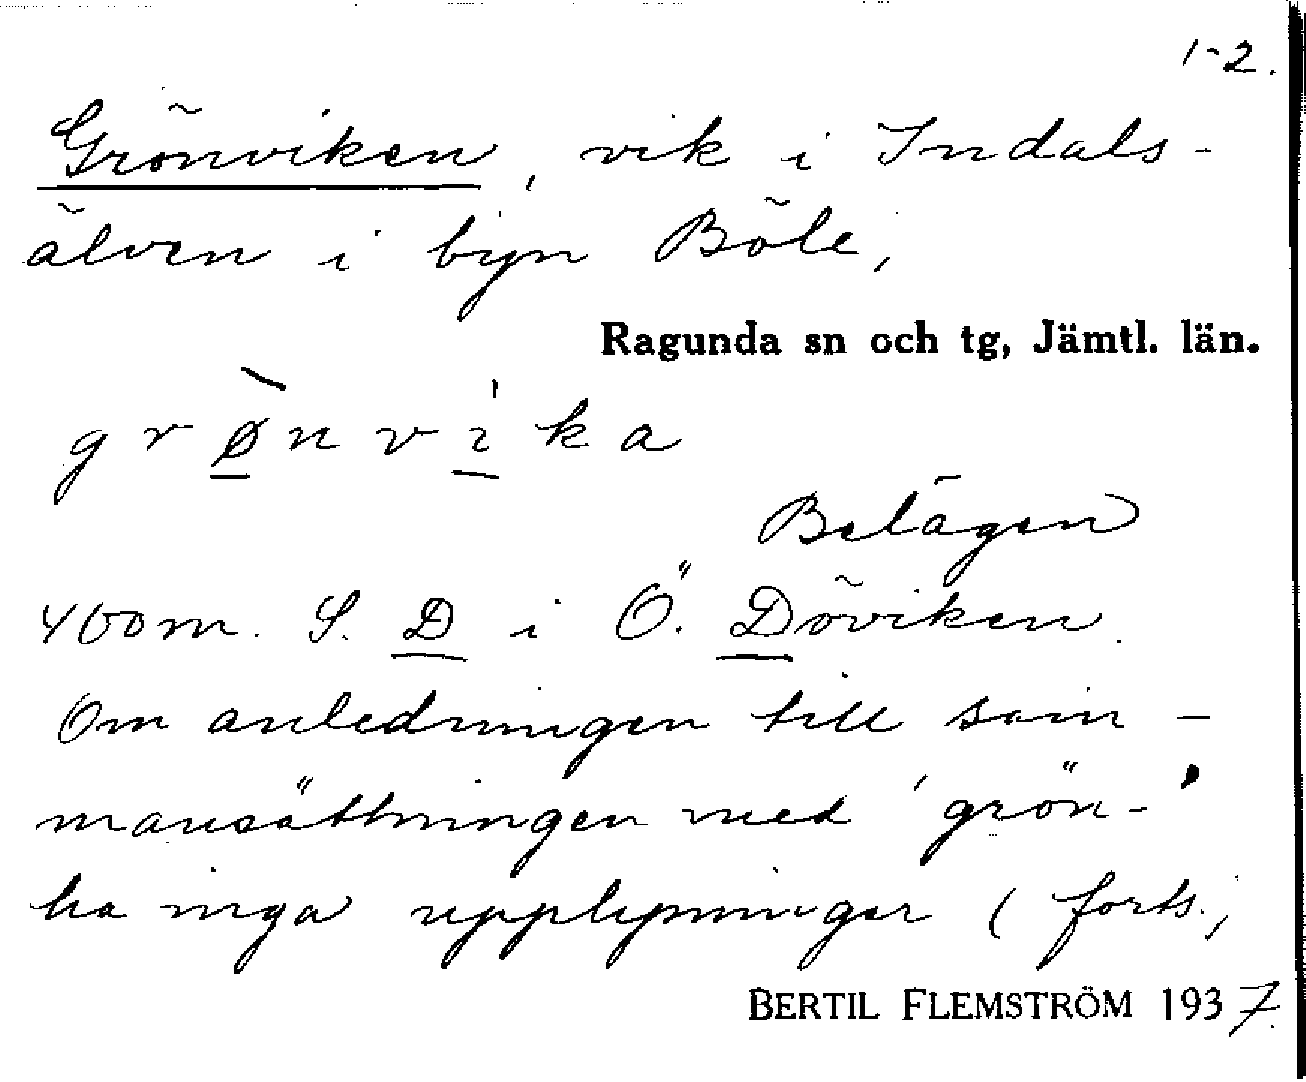 1-2.
Grönviken, vik i Indals-
älven i byn Böle,
Ragunda sn och tg, Jämtl. län.
grø̀nvi̍ka
Belägen
400 m. S. D i Ö. Döviken.
Om anledningen till sam-
mansättningen med 'grön-'
ha inga upplysningar (forts.,
BERTIL FLEMSTRÖM 1937